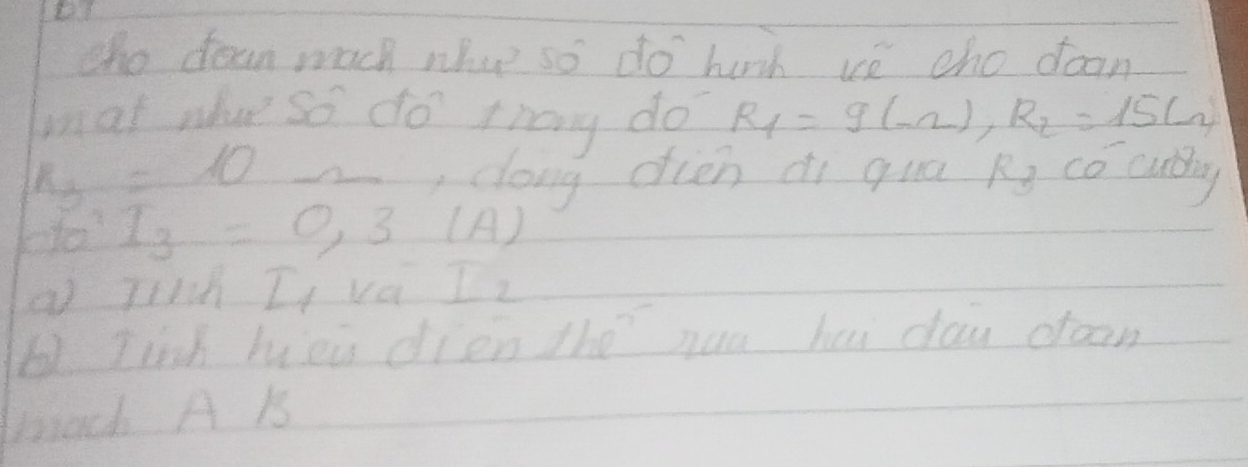 cho đoạn mạch như sơ đồ hình vẽ cho đoạn
mạt như sơ đồ trong đó R₁ = 9(Ω), R₂ = 15(Ω)
R₃ = 10 Ω, dòng điện đi qua R₃ có cường
độ I₃ = 0,3 (A)
a) Tính I₁ và I₂
b) Tính hiệu điện thế giữa hai đầu đoạn
mạch A B